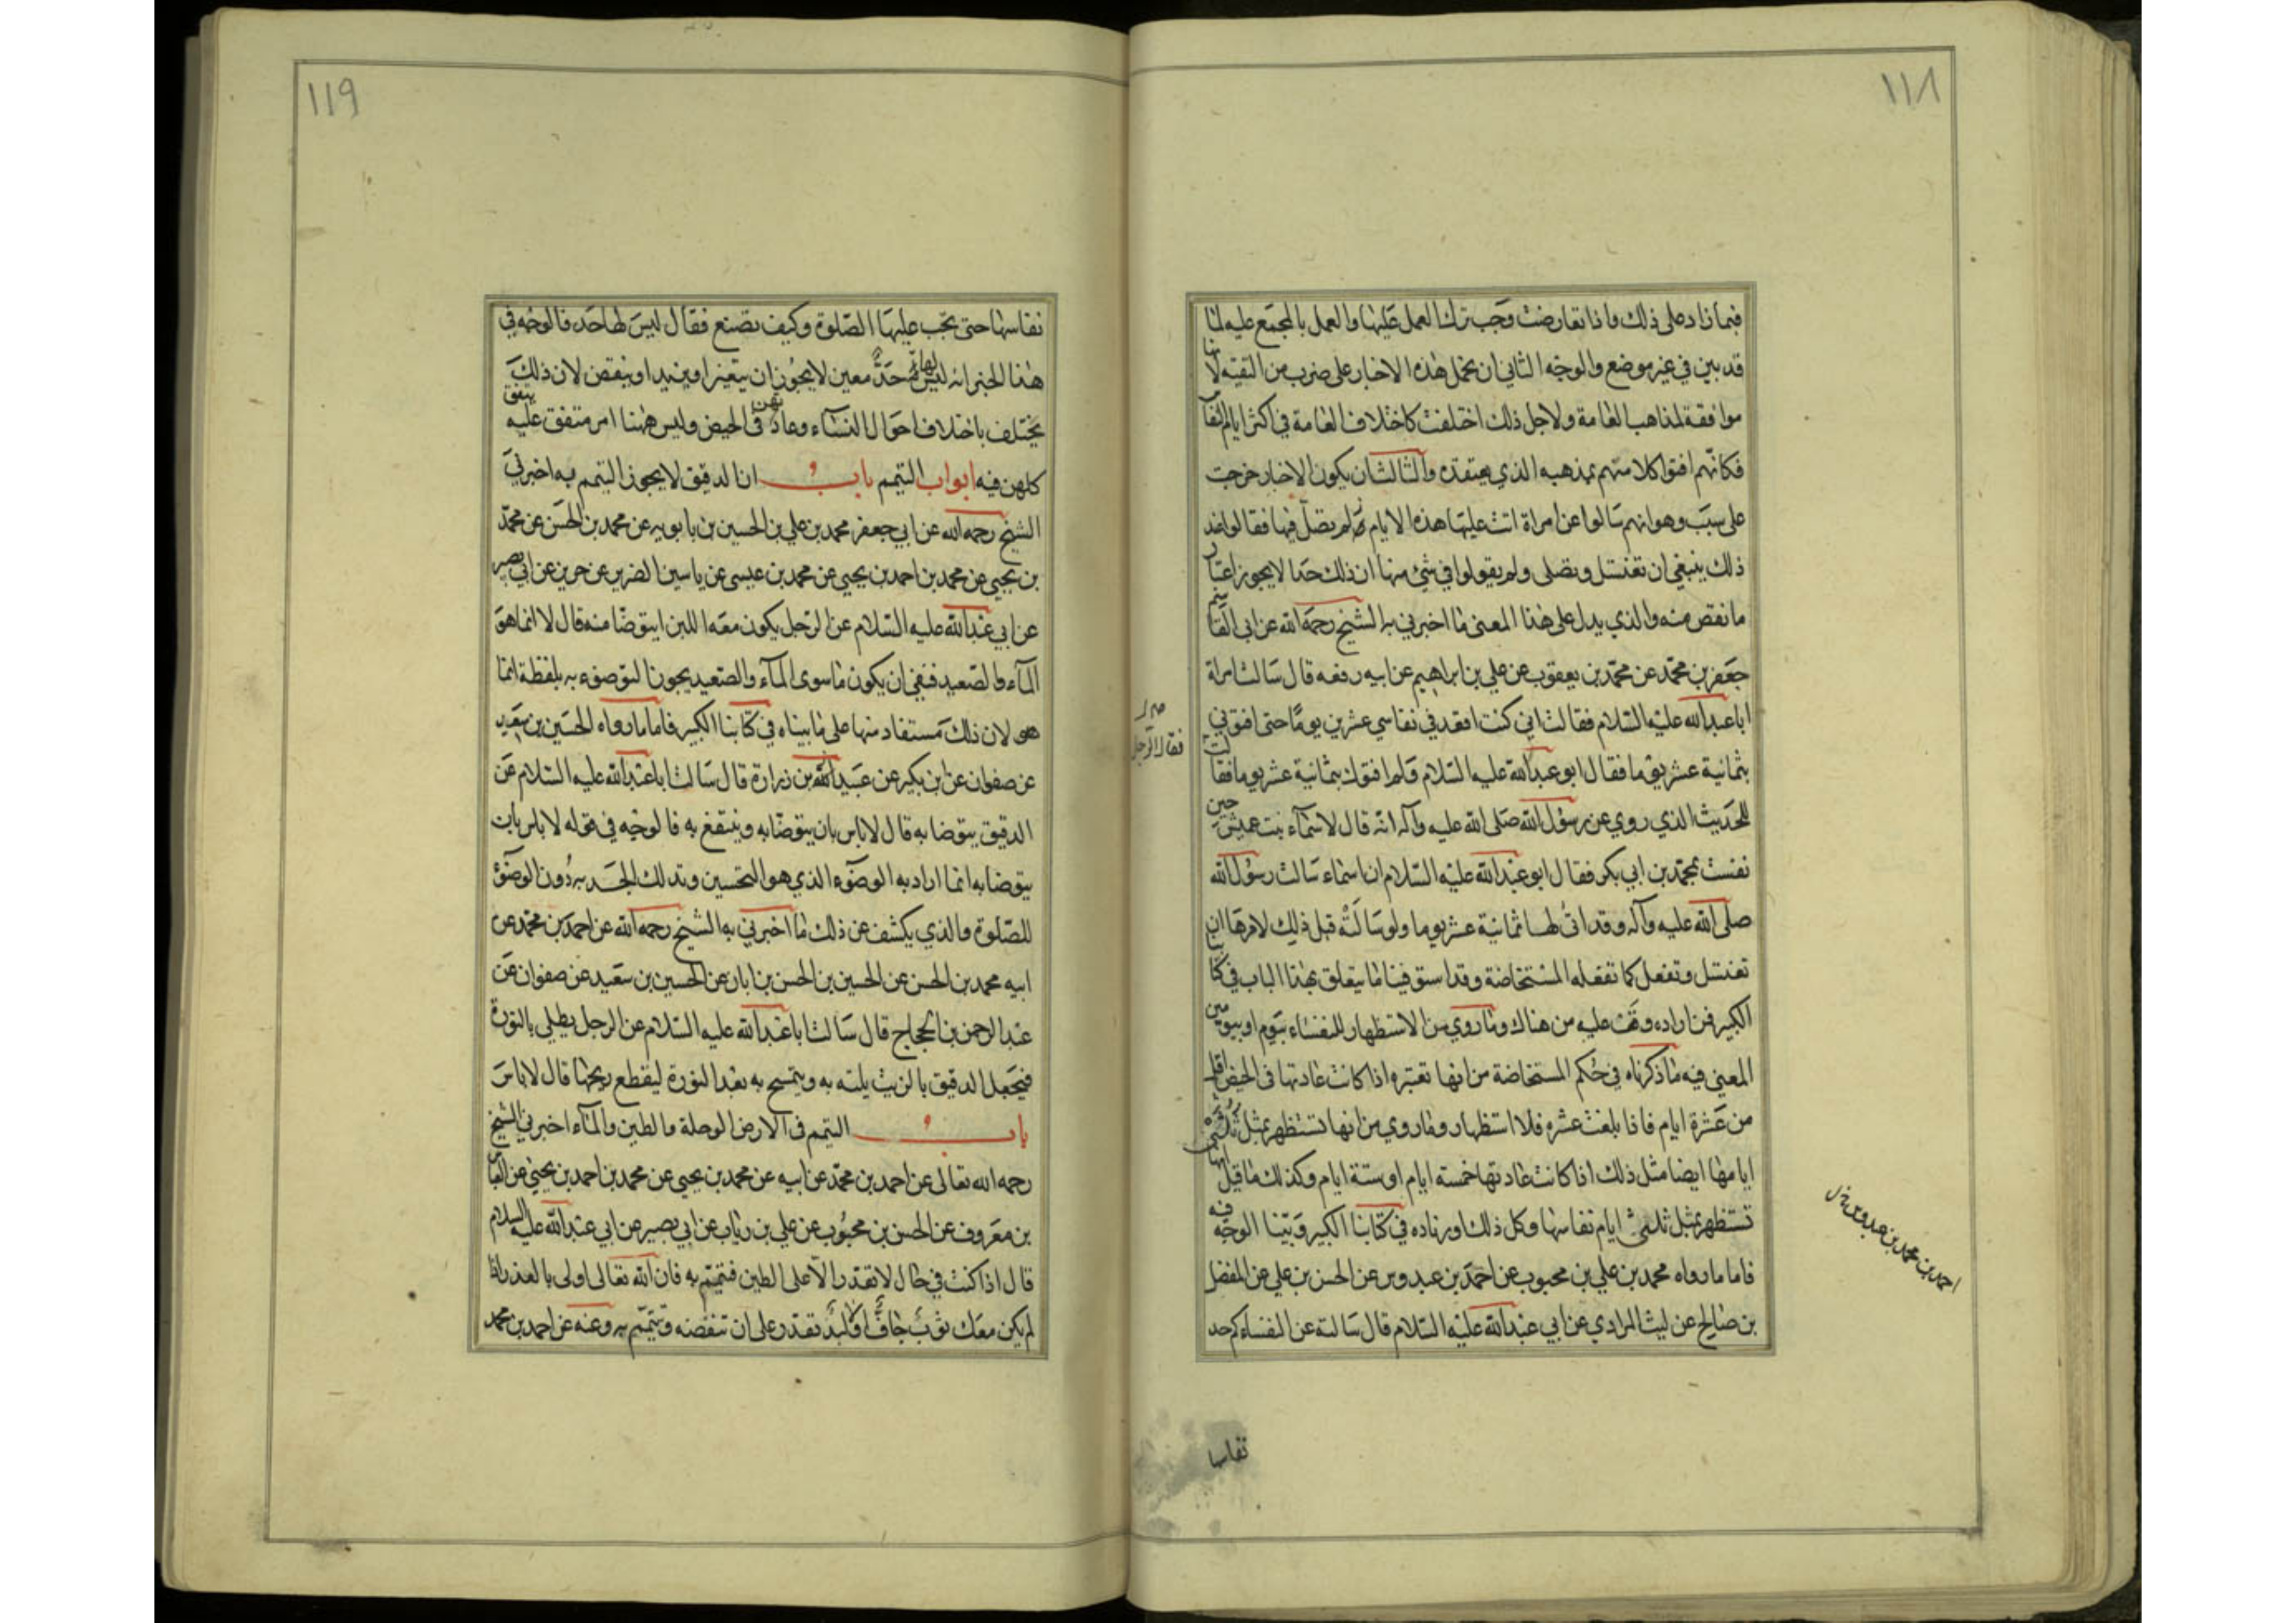 ١١٨
فيما زاد على ذلك واذا تعارضت وجب ترك العمل عليها والعمل بالمجمع عليه لانا
قد بين في غير موضع والوجه الثاني ان نحمل هذه الاخبار على ضرب من التقيه لانها
موافقة لمذاهب العامة ولاجل ذلك اختلفت كاختلاف العامة في اكثر ايام النفاس
فكانهم افتوا كلا منهم بمذهبه الذي يعتقده والثالث ان يكون الاخبار خرجت
على سبب وهو انهم سالوا عن امراة اتت عليها هذه الايام لم تصل فيها فقالوا عند
ذلك ينبغي ان تغتسل وتصلى ولم يقولوا في شئ منها ان ذلك حدا لا يجوز اعتبار
ما نقص منه والذي يدل على هذا المعنى ما اخبرني به الشيخ رحمه الله عن ابي القاسم
جعفر بن محمد عن محمد بن يعقوب عن علي بن ابراهيم عن ابيه رفعه قال سالت امراة
ابا عبدالله عليه السلام فقالت اني كنت اقعد في نفاسي عشرين يوما حتى افتوني
بثمانية عشر يوما فقال ابو عبدالله عليه السلام ولم افتوك بثمانية عشر يوما فقالت
فقال الرجل
للحديث الذي روي عن رسول الله صلى الله عليه وآله انه قال لاسماء بنت عميس حين
نفست بمحمد بن ابي بكر فقال ابو عبدالله عليه السلام ان اسماء سالت رسول الله
صلى الله عليه وآله وقد اتى لها ثمانية عشر يوما ولو سالته قبل ذلك لامرها ان
تغتسل وتفعل كما تفعله المستحاضة وقد استوفينا ما يتعلق بهذا الباب في كتابنا
الكبير فمن اراده وقف عليه من هناك وما روي من الاستظهار للنفساء بيوم او بيومين
المعنى فيه ما ذكرناه في حكم المستحاضة من انها تعتبره اذا كانت عادتها في الحيض اقل
من عشرة ايام فاذا بلغت عشره فلا استظهار وما روي من انها تستظهر بمثل ثلثي
ايامها ايضا مثل ذلك اذا كانت عادتها خمسته ايام او ستة ايام وكذلك ما قيل انها
تستظهر بمثل ثلثي ايام نفاسها وكل ذلك اوردناه في كتابنا الكبير وبينا الوجه فيه
فاما ما رواه محمد بن علي بن محبوب عن احمد بن عبدوس عن الحسن بن علي عن المفضل
احمد بن محمد بن عبدوس خ ل
بن صالح عن ليث المرادي عن ابي عبدالله عليه السلام قال سالته عن النفساء كم حد
نفاسها
١١٩
نفاسها حتى يجب عليها الصلوة وكيف تصنع فقال ليس لها حد فالوجه في
هذا الخبر انه ليس لها حد معين لا يجوز ان يتغير او يزيد او ينقص لان ذلك
يختلف باختلاف احوال النساء وعادتهن في الحيض وليس ههنا امر متفق عليه يتفق
كلهن فيه ابواب التيمم باب ان الدقيق لا يجوز التيمم به اخبرني
الشيخ رحمه الله عن ابي جعفر محمد بن علي بن الحسين بن بابويه عن محمد بن الحسن عن محمد
بن يحيي عن محمد بن احمد بن يحيي عن محمد بن عيسى عن ياسين الضرير عن حريز عن ابي بصير
عن ابي عبدالله عليه السلام عن الرجل يكون معه اللبن ايتوضا منه قال لا انما هو
المآء والصعيد فنفى ان يكون ما سوى المآء والصعيد يجوز التوضوء به بلفظة انما
هو لان ذلك مستفاد منها على ما بيناه في كتابنا الكبير فاما ما رواه الحسين بن سعيد
عن صفوان عن ابن بكير عن عبيدالله بن زرارة قال سالت ابا عبدالله عليه السلام عن
الدقيق يتوضا به قال لا باس بان يتوضا به وينتفع به فالوجه في قوله لا باس بان
يتوضا به انما اراد به الوضوء الذي هو التحسين وتدلك الجسد به دون الوضوء
للصلوة والذي يكشف عن ذلك ما اخبرني به الشيخ رحمه الله عن احمد بن محمد عن
ابيه محمد بن الحسن عن الحسين بن الحسن بن ابان عن الحسين بن سعيد عن صفوان عن
عبد الرحمن بن الحجاج قال سالت ابا عبدالله عليه السلام عن الرجل يطلي بالنورة
فيجعل الدقيق بالزيت يلته به ويتمسح به بعد النورة ليقطع ريحها قال لا باس
باب التيمم في الارض الوحلة والطين والمآء اخبرني الشيخ
رحمه الله تعالى عن احمد بن محمد عن ابيه عن محمد بن يحيي عن محمد بن احمد بن يحيى عن العباس
بن معروف عن الحسن بن محبوب عن علي بن رئاب عن ابي بصير عن ابي عبدالله عليه السلام
قال اذا كنت في حال لا تقدر الا على الطين فتيمم به فان الله تعالى اولى بالعذر اذا
لم يكن معك ثوب جاف او لبد تقدر على ان تنفضه وتتيمم به وعنه عن احمد بن محمد